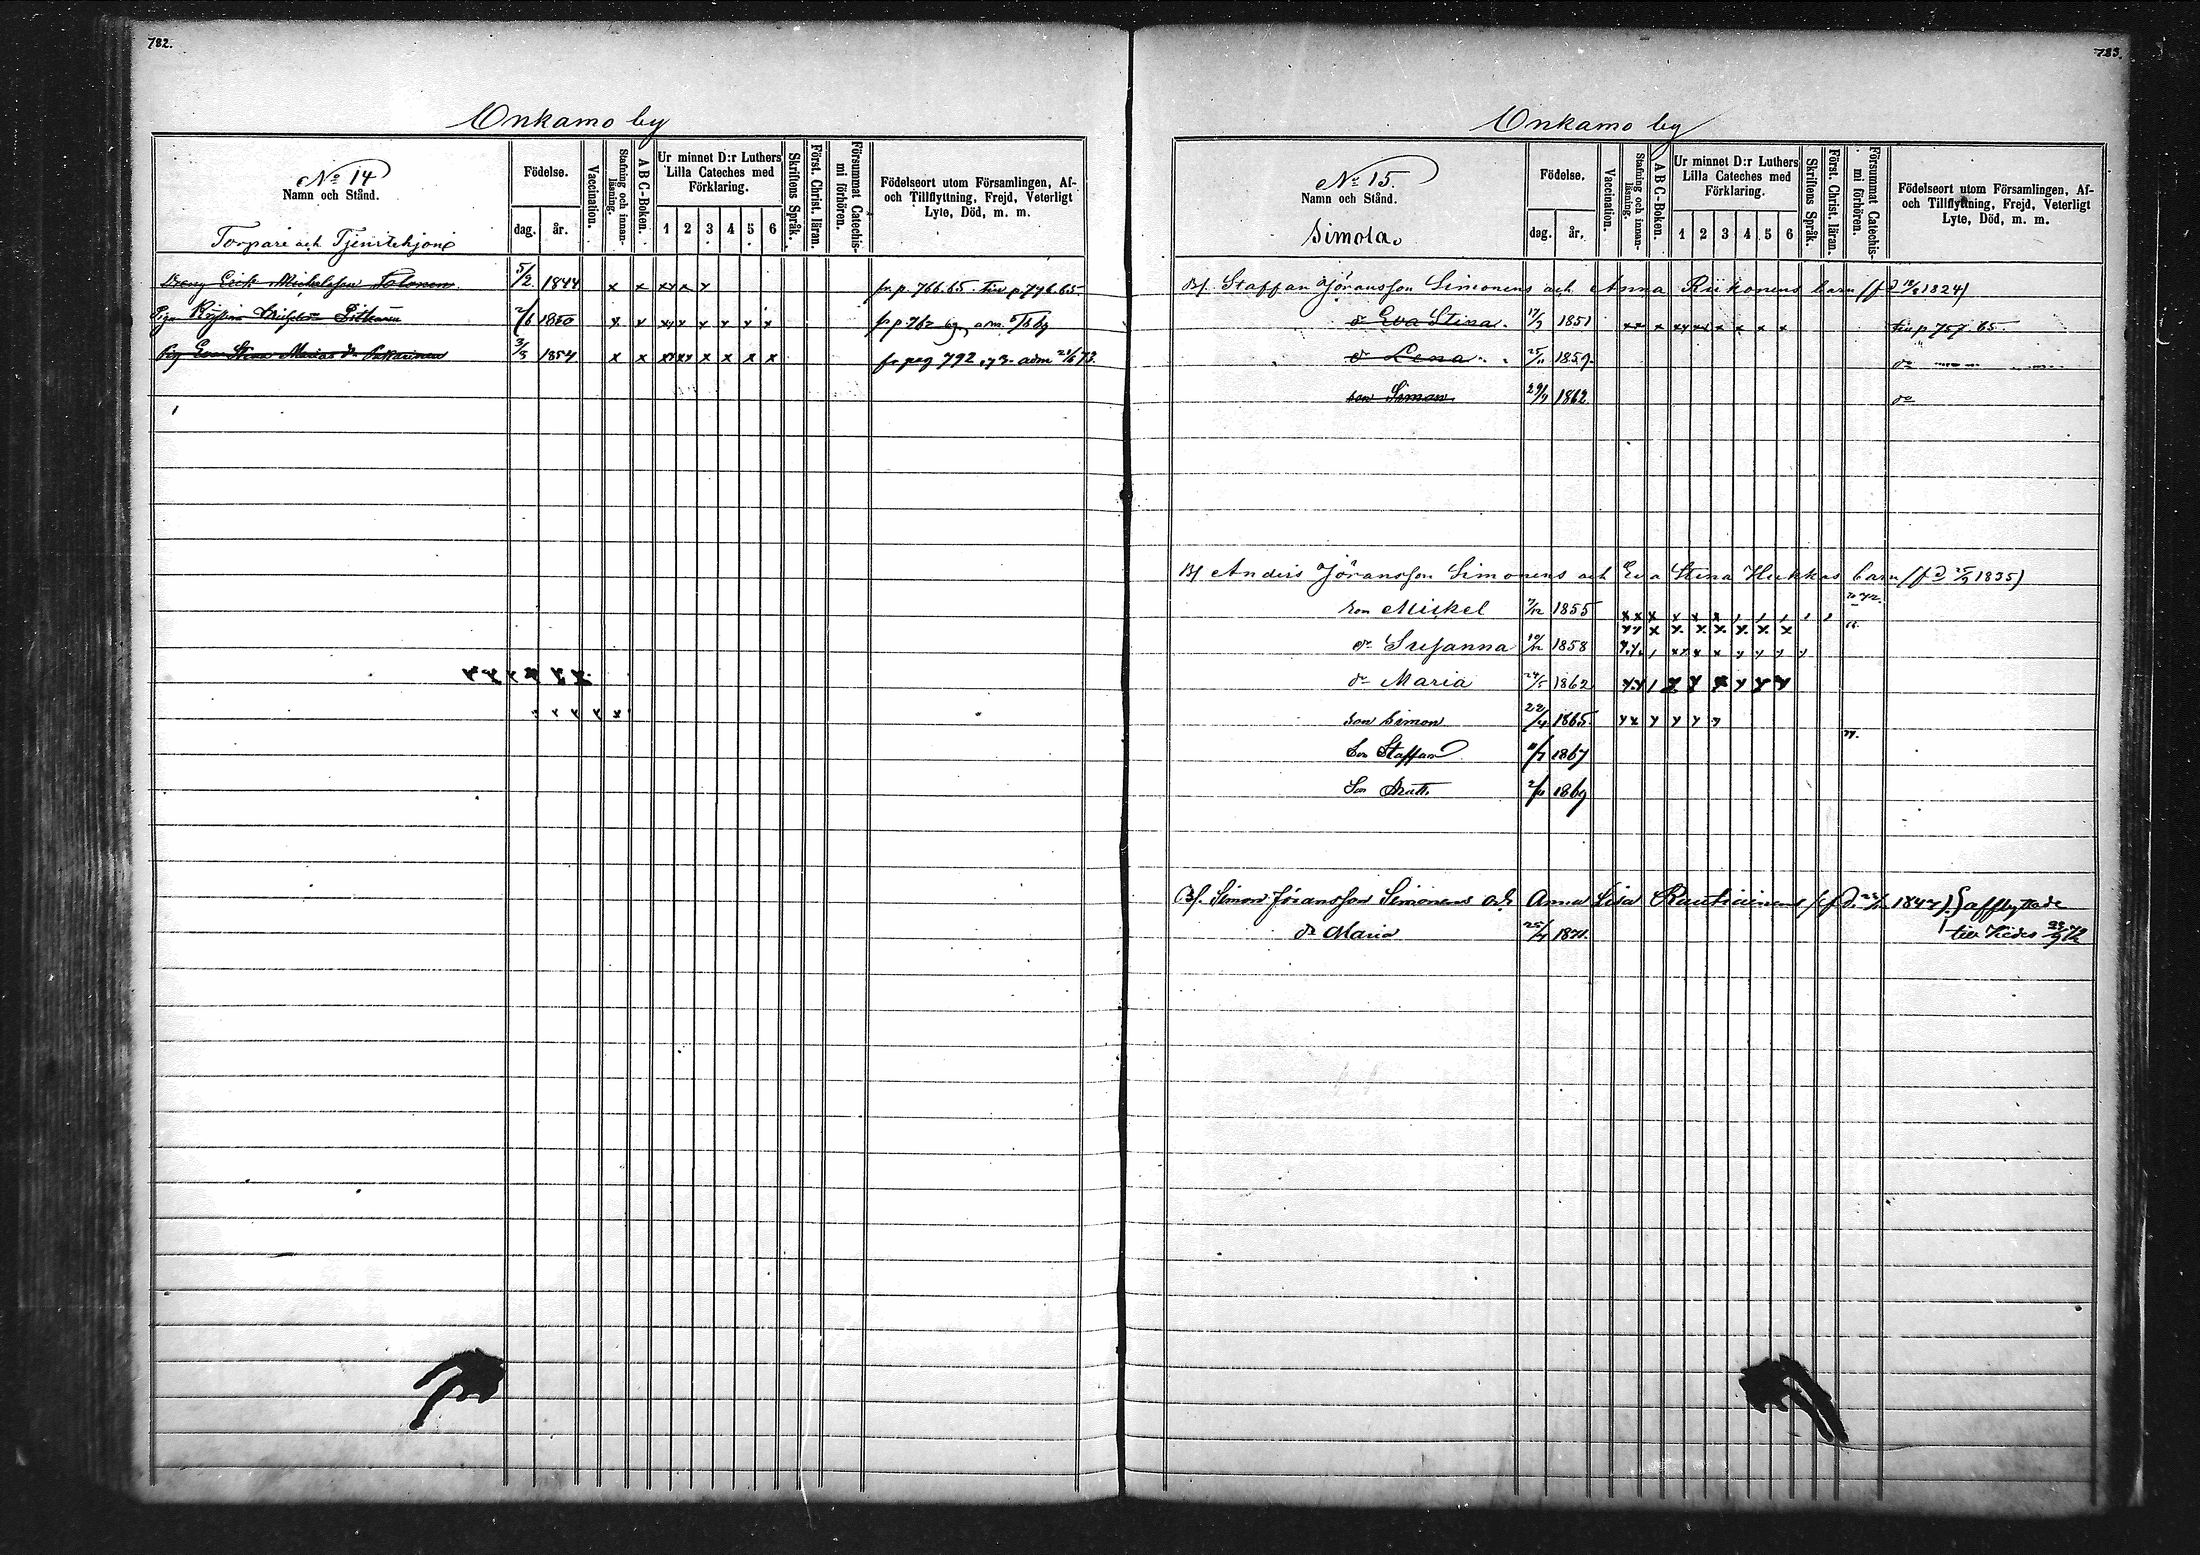 782.
Onkamo by
No 14
Namn och Stånd.
Födelse.
dag.
år.
Vaccination.
Stafning och innanläsning.
ABC-Boken.
Ur minnet D:r Luthers Lilla Cateches med Förklaring.
1 2 3 4 5 6
Skriftens Språk.
Först. Christ. läran.
Försummat Catechismi förhören.
Födelseort utom Församlingen, Af- och Tillflyttning, Frejd, Veterligt Lyte, Död, m. m.
Torpare och Tjenstehjon
Dreng Erik Michelsson 5/2 1844 x x xx x x fr. p. 766.65. Tin p 796.65.
Piga 2/6 1850 x x xx x x x x x fr p 762
Pig Eva Stina Marias dr 3/3 1854 x x xx xx x x x x fr pag 792
783.
Onkamo by
No 15.
Namn och Stånd.
Födelse.
dag.
år.
Vaccination.
Stafning och innanläsning.
ABC-Boken.
Ur minnet D:r Luthers Lilla Cateches med Förklaring.
1 2 3 4 5 6
Skriftens Språk.
Först. Christ. läran.
Försummat Catechismi förhören.
Födelseort utom Församlingen, Af- och Tillflyttning, Frejd, Veterligt Lyte, Död, m. m.
Simola.
Bf. Staffan Jöransson Simonens och Anna Riikonens barn (fd 1824)
dr Eva Stina. 17/7 1851 xx x xx xx x x x x tin p 757 65.
dr Lena 25/11 1859. do
son Simon 29/7 1862 do
Bf Anders Jöransson Simonens och Eva Stina Hukkas barn (fd 1835)
son Mickel 7/12 1855
dr Susanna 10/12 1858
dr Maria 24/5 1862
son Simon 22/4 1865
Son Staffan 11/7 1867
Son Antti 1869
Bf. Simon Jöransson Simonens och Anna Lisa Rautiainens (fd. 1847) afflyttade
dr Maria 25/4 1871. till Kides